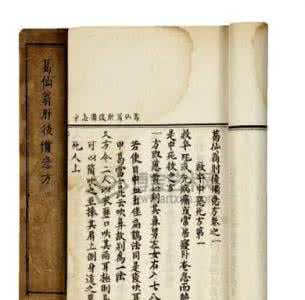 葛仙翁肘後備急方
葛仙翁肘後備急方卷之一
救卒中惡死方第一
救卒死或先病痛或常居寢卧奄忽而絕
是中死救之方
一方取葱黄心刺其鼻男左女右入七八
若使目中血出佳扁鵲法同是後吹
中葛當言此云吹鼻故別為一法
又方令二人以衣壅口吹其兩耳極則
可以筒吹之並捧其肩上側身遠之
死人上